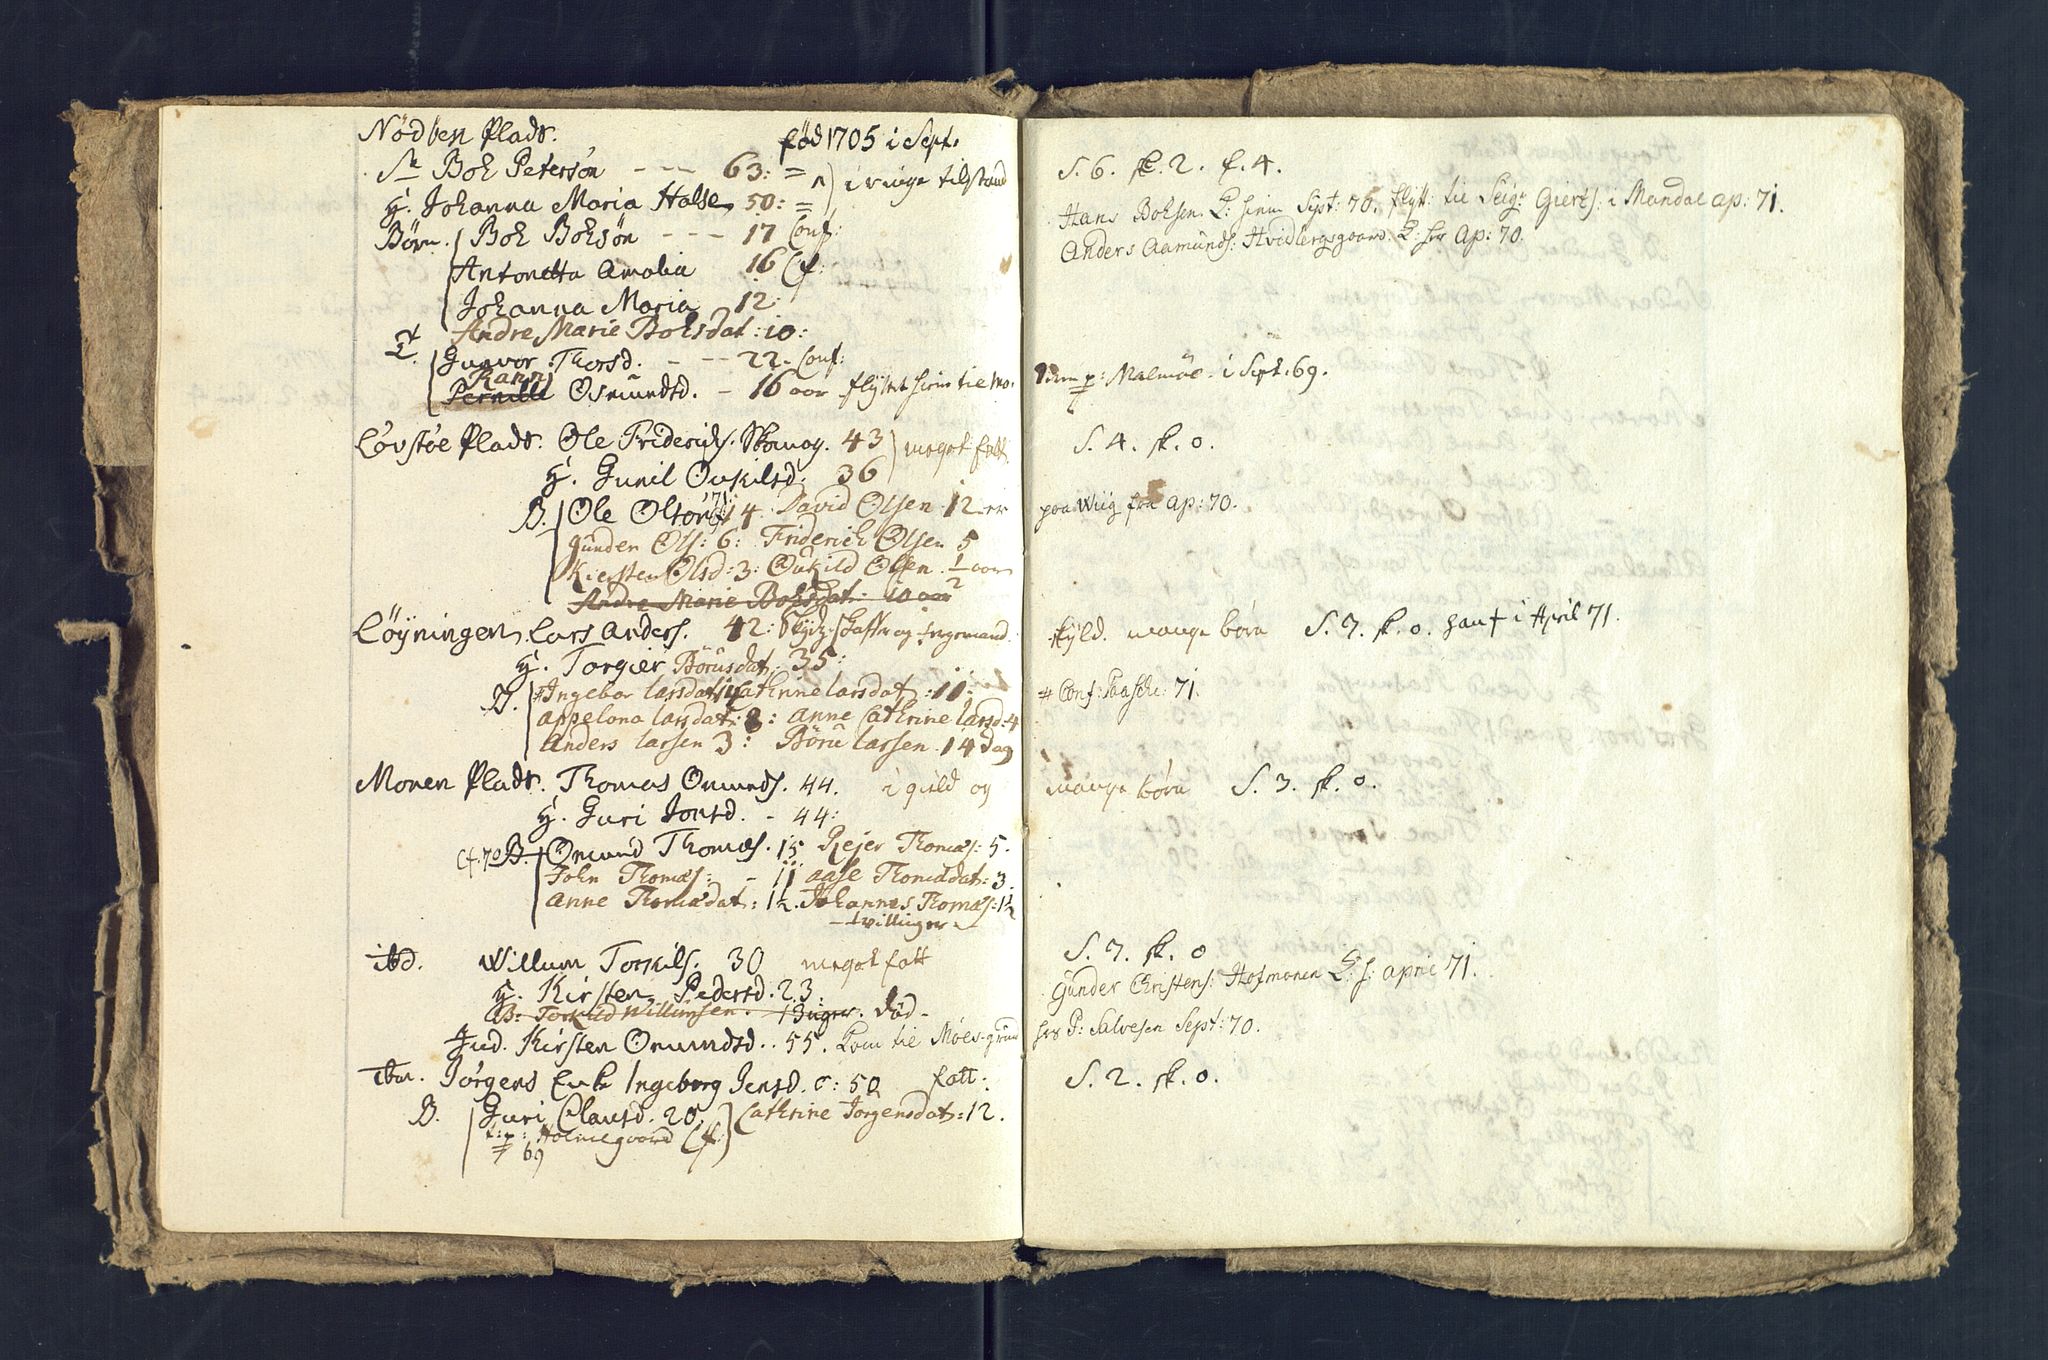 Nödben Plads. fød 1705 i Sept.
Sr Boh Petersøn - - - 63: = i ringe tilstand
H. Johanna Maria Halse 50: =
Børn. Boh Bohsøn - - - 17 Conf:
Antonetta Amalia 16 Cf:
Johanna Maria 12
Andre Marie Bohsdat: 10:
T. Gunvor Thorsd. - - - 22. Conf:
Rann
Pernille Osmundsd. - 16 aar flyttet hiem til Mo.
Løvstøe Plads. Ole Friderichs. Skomag. 43 meget fatt.
H. Gunil Ovkilsd. 36
B. Ole Olsøn 14 David Olsen 12 er
Gunder Ols: 6: Friderich Olsen 5
Kiersten Olsd: 3: Oukild Olsen. ½ aar
Andre Marie Bohsdat: 10 aar
Löyningen. Lars Anders. 42: Skydz-skaffer og fergemand.
H. Torgier Börusdat: 35:
B. # Ingebor larsdat: 14 Cathrine larsdat: 11:
appelona larsdat: 8: anne Cathrine larsd: 4
Anders larsen 3: Börü larsen. 14 dag
Monen Plads. Thomas Omunds. 44. i gield og
H. Guri Jonsd. - 44:
Cf. 70 B. Omund Thomæs. 15 Rejer Thomæs: 5.
John Thomæs: - 11 aase Thomædat: 3.
Anne Thomædat: 1½. Johannes Thomæs: 1½
- tvillinger -
ibd. Willum Torkils. 30 meget fatt
H. Kirsten Pedersd. 23.
B: Torkild Willumsen. død -
Ind. Kirsten Omundsd. . 55. kom til Möes-grund
ibm. Jörgens Enke Ingeborg Jensd. o: 50 fatt.
B. Guri Clausd. 20. Cathrine Jörgensdat: 12.
t: p: Holmegaard Cf.
69
S. 6. sk. 2. f. 4.
Hans Bohsen. hiem Sept: 70. flytt: til Seigr Giertz: i Mandal ap: 71.
Anders Aamunds: Hvidbergsgaard. hos Ap: 70.
p: Malmöe. i Sept. 69.
S. 4. sk. 0.
paa Wiig fra ap: 70.
skyld. mange børn S. 7. sk. 0. han † i April 71.
# Conf: Paaske: 71.
mange børn S. 3. sk. 0.
S. 7. sk. 0
Gunder Christens: Hofmanen april 71.
hos P: Salvesen Sept: 70.
S. 2. sk. 0.